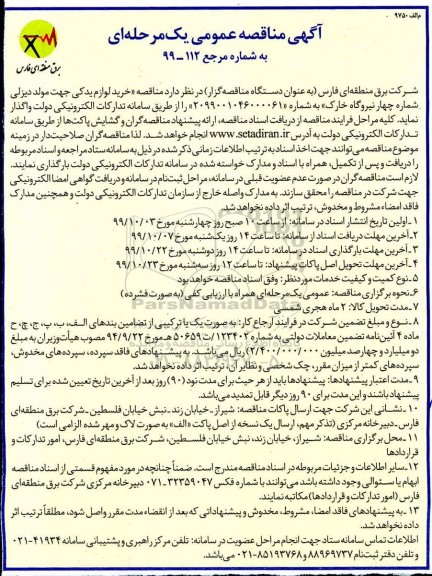 م‌الف ۹۷۵۰
آگهی مناقصه عمومی یک‌مرحله‌ای
به شماره مرجع ۱۱۲-۹۹
برق منطقه‌ای فارس
شــرکت برق منطقه‌ای فارس (به عنوان دستگاه مناقصه‌گزار) در نظر دارد مناقصه «خرید لوازم یدکی جهت مولد دیزلی
شماره چهار نیروگاه خارک» به شماره «۲۰۹۹۰۰۱۰۴۶۰۰۰۰۶۱» را از طریق سامانه تدارکات الکترونیکی دولت واگذار
نماید. کلیه مراحل فرایند مناقصه از دریافت اسناد مناقصه، ارائه پیشنهاد مناقصه‌گران و گشایش پاکت‌ها از طریق سامانه
تــدارکات الکترونیکی دولت به آدرس www.setadiran.ir انجام خواهد شد. لذا مناقصه‌گران صلاحیت‌دار در زمینه
موضوع مناقصه می‌توانند جهت اخذ اسناد به ترتیب اطلاعات زمانی ذکر شده در ذیل به سامانه ستاد مراجعه و اسناد مربوطه
را دریافت و پس از تکمیل، همراه با اسناد و مدارک خواسته شده در سامانه تدارکات الکترونیکی دولت بارگذاری نمایند.
لازم است مناقصه‌گران در صورت عدم عضویت قبلی در سامانه، مراحل ثبت‌نام در سامانه و دریافت گواهی امضا الکترونیکی
جهت شرکت در مناقصه را محقق سازند. به مدارک واصله خارج از سازمان تدارکات الکترونیکی دولت و همچنین مدارک
فاقد امضاء مشروط و مخدوش، ترتیب اثر داده نخواهد شد.
۱ـ اولین تاریخ انتشار اسناد در سامانه: از ساعت ۱۰ صبح روز چهارشنبه مورخ ۹۹/۱۰/۰۳
۲ـ آخرین مهلت دریافت اسناد از سامانه: تا ساعت ۱۴ روز یک‌شنبه مورخ ۹۹/۱۰/۰۷
۳ـ آخرین مهلت بارگذاری اسناد در سامانه: تا ساعت ۱۴ روز دوشنبه مورخ ۹۹/۱۰/۲۲
۴ـ آخرین مهلت تحویل اصل پاکات پیشنهاد: تا ساعت ۱۲ روز سه‌شنبه مورخ ۹۹/۱۰/۲۳
۵ـ نوع کمیت و کیفیت خدمات موردنظر: وفق اسناد مناقصه خواهد بود
۶ـ نحوه برگزاری مناقصه: عمومی یک‌مرحله‌ای همراه با ارزیابی کیفی (به صورت فشرده)
۷ـ مدت تحویل کالا: ۲ ماه هجری شمسی
۸ـ نــوع و مبلغ تضمین شــرکت در فرایند ارجاع کار: به صورت یک یا ترکیبی از تضامین بندهای الــف، ب، پ، ج، چ، ح
ماده ۴ آئین‌نامه تضمین معاملات دولتی به شماره ۱۲۳۴۰۲/ت۵۰۶۵۹هـ مورخ ۹۴/۹/۲۲ مصوب هیأت‌وزیران به مبلغ
دو میلیارد و چهارصد میلیون (۲/۴۰۰/۰۰۰/۰۰۰) ریال می‌باشد. به پیشنهادهای فاقد سپرده، سپرده‌های مخدوش،
سپرده‌های کمتر از میزان مقرر، چک شخصی و نظایر آن، ترتیب اثر داده نخواهد شد.
۹ـ مدت اعتبار پیشنهادها: پیشنهادها باید از هر حیث برای مدت نود (۹۰) روز بعد از آخرین تاریخ تعیین شده برای تسلیم
پیشنهاد باشند و این مدت برای ۹۰ روز دیگر قابل تمدید می‌باشد.
۱۰ـ نشــانی این شرکت جهت ارسال پاکات مناقصه: شیراز ـ خیابان زند ـ نبش خیابان فلسطین ـ شرکت برق منطقه‌ای
فارس ـ دبیرخانه مرکزی (تذکر مهم، ارسال یک نسخه از اصل پاکت «الف» به صورت لاک و مهر شده الزامی است)
۱۱ـ محل برگزاری مناقصه: شیراز، خیابان زند، نبش خیابان فلسطین، شرکت برق منطقه‌ای فارس، امور تدارکات و
قراردادها
۱۲ـ سایر اطلاعات و جزئیات مربوطه در اسناد مناقصه مندرج است. ضمناً چنانچه در مورد مفهوم قسمتی از اسناد مناقصه
ابهام یا سئوالی وجود داشته باشد می‌توانند با شماره فکس ۳۲۳۵۹۰۴۷-۰۷۱ دبیرخانه مرکزی شرکت برق منطقه‌ای
فارس (امور تدارکات و قراردادها) مکاتبه نمایند.
۱۳ـ به پیشنهادهای فاقد امضا، مشروط، مخدوش و پیشنهاداتی که بعد از انقضاء مدت مقرر واصل شود، مطلقاً ترتیب اثر
داده نخواهد شد.
اطلاعات تماس سامانه ستاد جهت انجام مراحل عضویت در سامانه: تلفن مرکز راهبری و پشتیبانی سامانه ۴۱۹۳۴-۰۲۱
و تلفن دفتر ثبت‌نام ۸۸۹۶۹۷۳۷ و ۸۵۱۹۳۷۶۸-۰۲۱ می‌باشد.
ParsNamadData